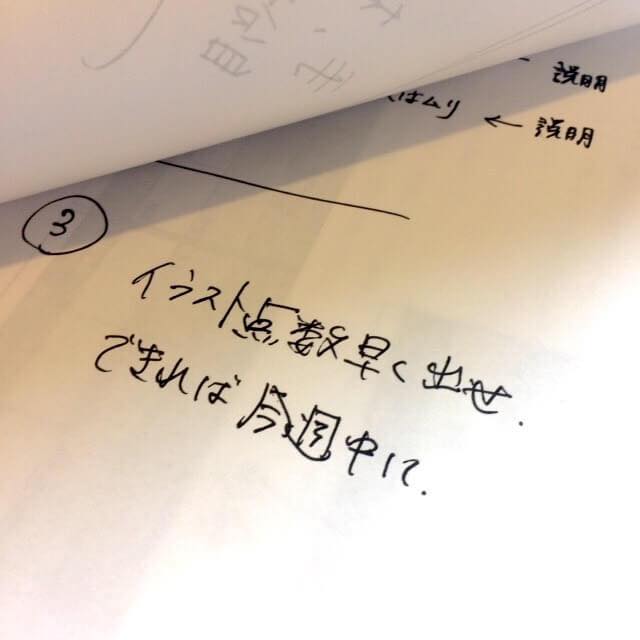 説明
はムリ ← 説明
③
イラスト点数早く出せ.
できれば今週中に.